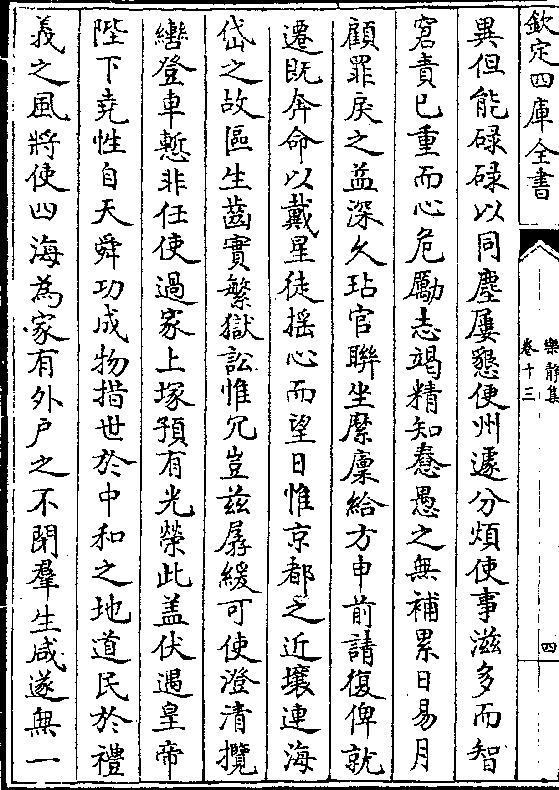 欽定四庫全書
樂靜集
卷十三
四
異但能碌碌以同塵屢懇便州遽分煩使事滋多而智
窘責已重而心危勵志竭精知惷愚之無補累日易月
顧罪戾之益深久玷官聯坐縻廩給方申前請復俾就
遷既奔命以戴星徒揺心而望日惟京都之近壤連海
岱之故區生齒實繁獄訟惟冗豈兹孱緩可使澄清攬
轡登車慙非任使過家上塚預有光榮此盖伏遇皇帝
陛下堯性自天舜功成物措世於中和之地道民於禮
義之風將使四海為家有外戸之不閉羣生咸遂無一